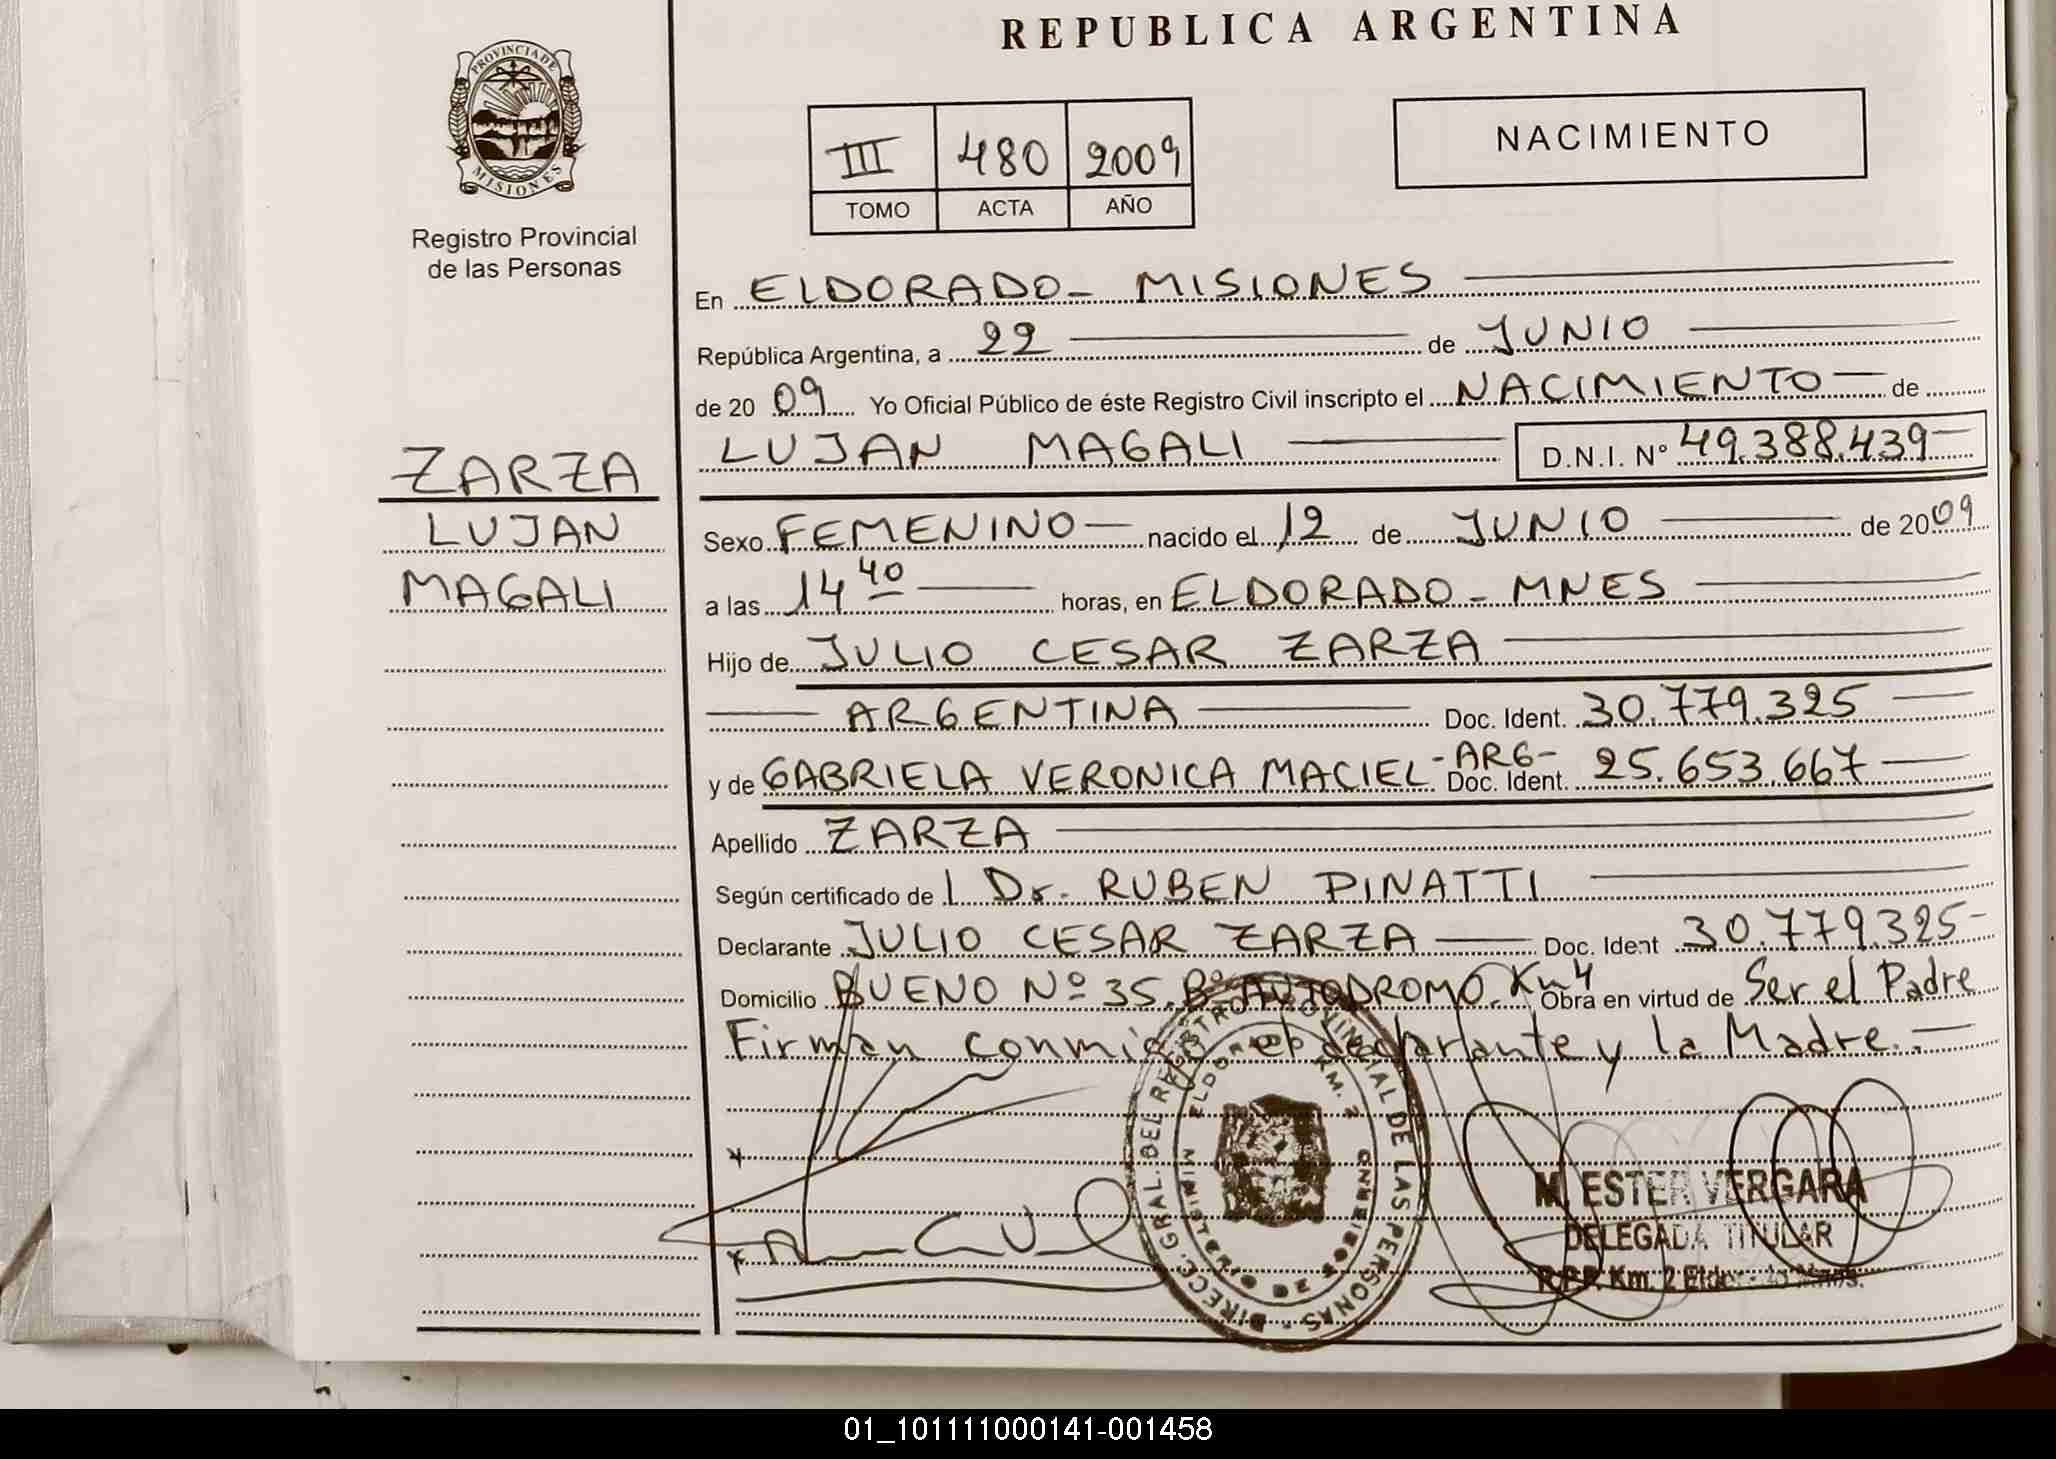 REPUBLICA ARGENTINA
PROVINCIA DE
MISIONES
Registro Provincial
de las Personas
III 480 2009
TOMO ACTA AÑO
NACIMIENTO
En ELDORADO - MISIONES
República Argentina, a 22 de JUNIO
de 2009 Yo Oficial Público de éste Registro Civil inscripto el NACIMIENTO de
LUJAN MAGALI D.N.I. Nº 49.388.439
ZARZA
LUJAN
MAGALI
Sexo FEMENINO nacido el 12 de JUNIO de 2009
a las 14 40 horas, en ELDORADO - MNES
Hijo de JULIO CESAR ZARZA
ARGENTINA Doc. Ident. 30.779.325
y de GABRIELA VERONICA MACIEL - ARG - Doc. Ident. 25.653.667
Apellido ZARZA
Según certificado de Dr. RUBEN PINATTI
Declarante JULIO CESAR ZARZA Doc. Ident 30.779.325
Domicilio BUENO Nº 35. Bº AUTODROMO. Km 4 Obra en virtud de Ser el Padre
Firman conmigo el declarante y la Madre.-
DIRECC. GRAL. DEL REGISTRO PROVINCIAL DE LAS PERSONAS
ELDORADO KM. 2
M. ESTER VERGARA
DELEGADA TITULAR
R.P.P. Km. 2
01_101111000141-001458